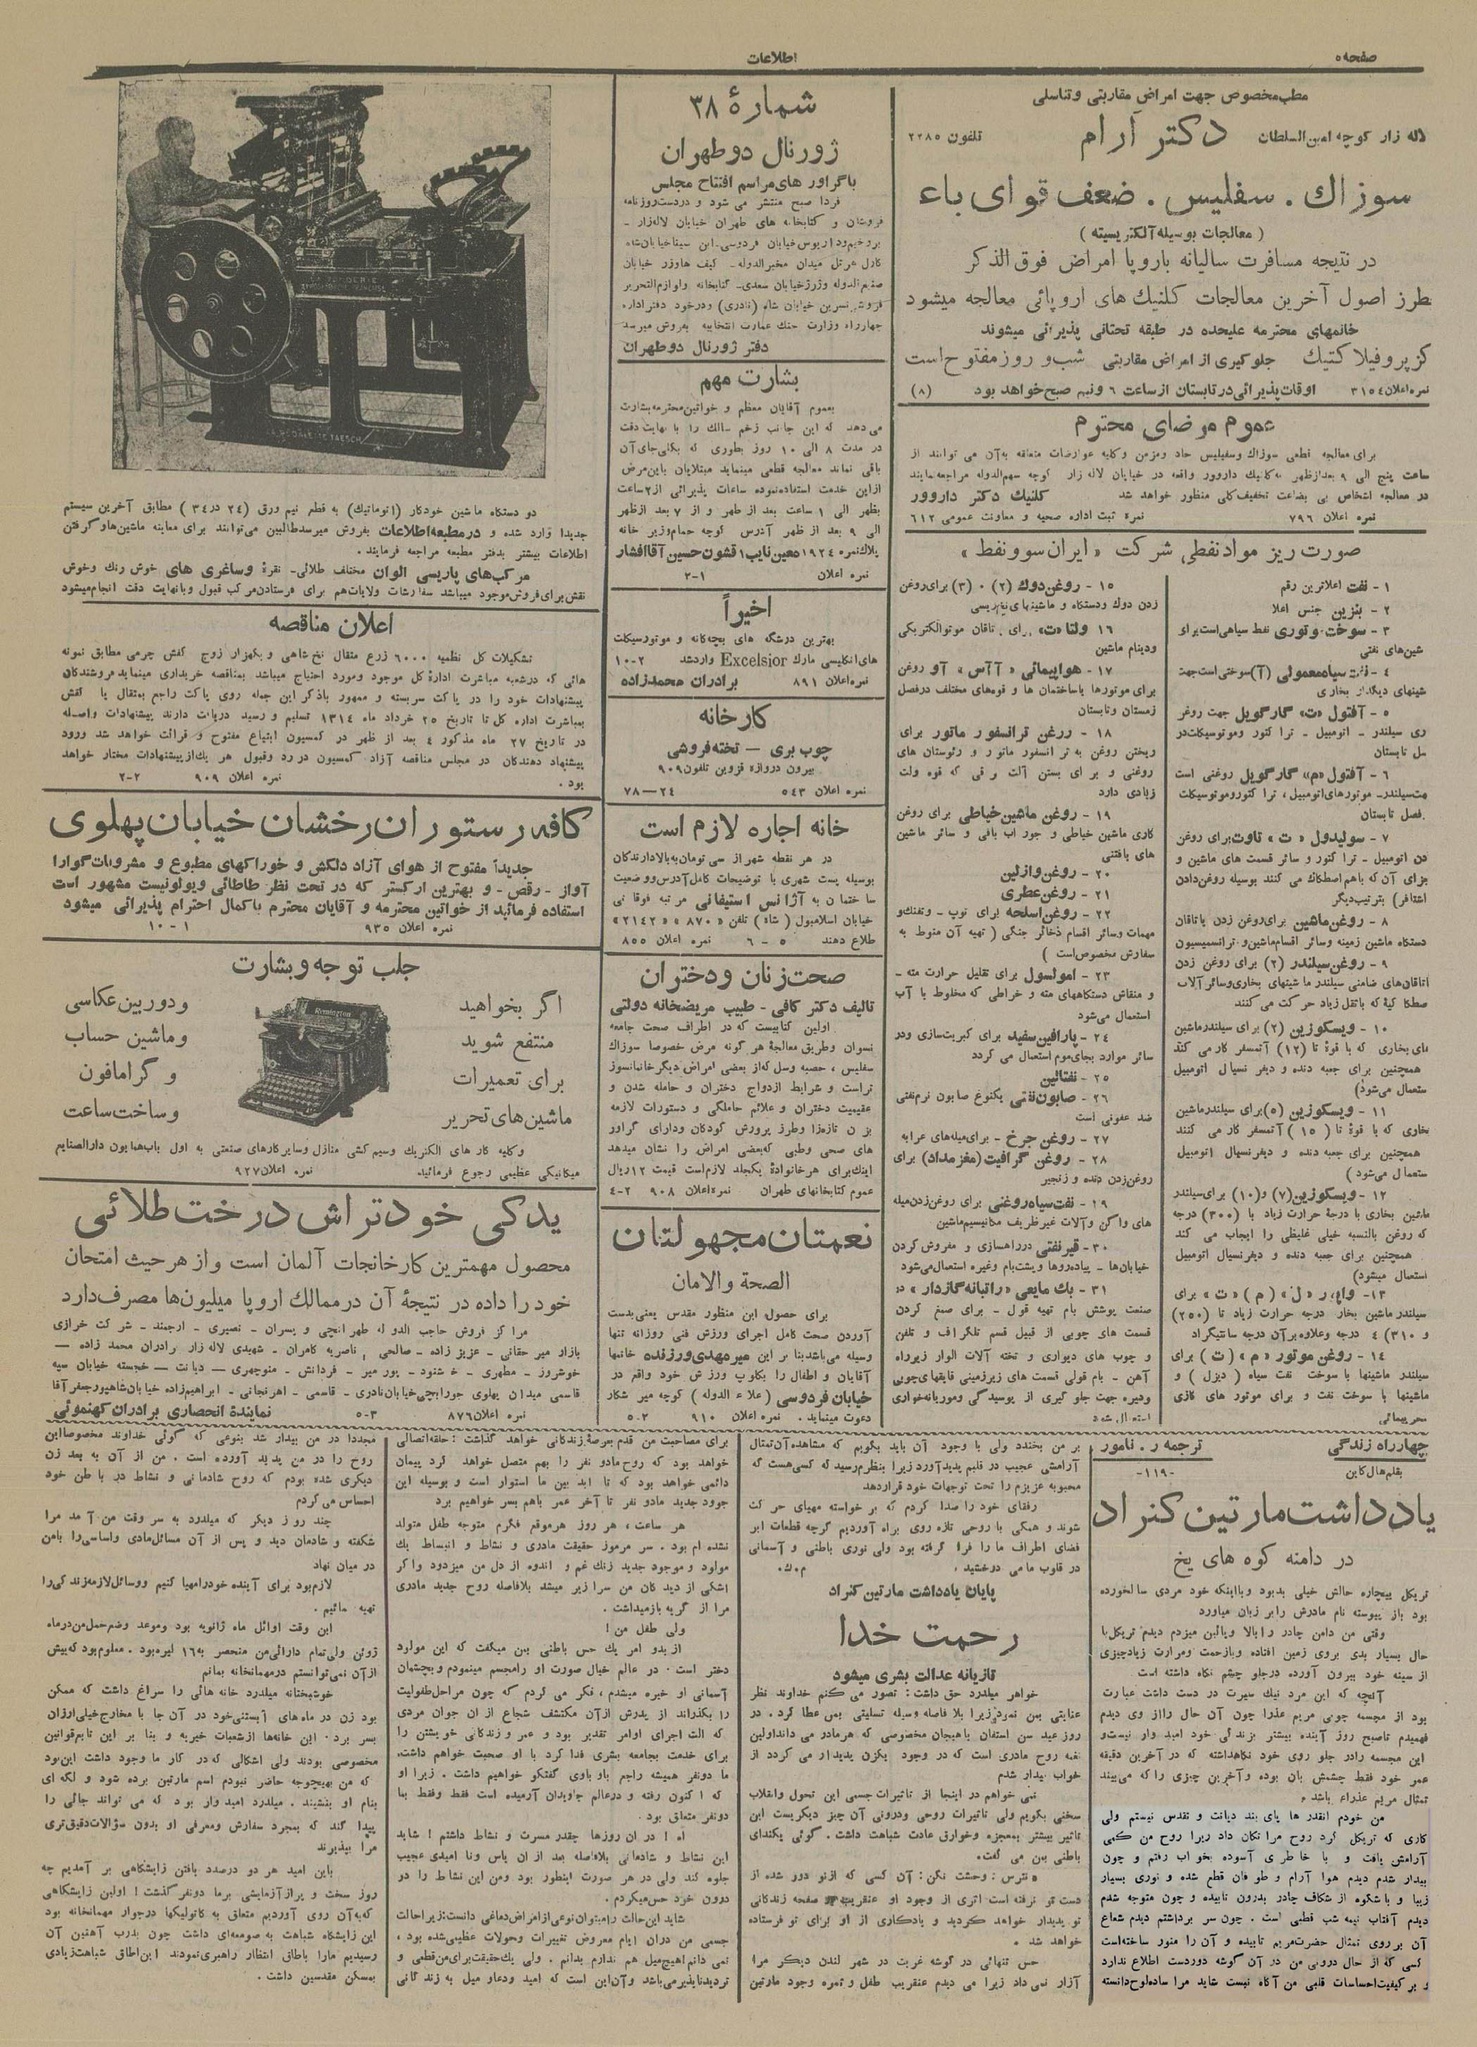 صفحه ۵
اطلاعات
مطب مخصوص جهت امراض مقاربتی و تناسلی
لاله زار کوچه امین السلطان دکتر آرام تلفون ۲۲۸۵
سوزاك . سفلیس . ضعف قوای باء
( معالجات بوسیله آلکتریسیته )
در نتیجه مسافرت سالیانه باروپا امراض فوق الذکر
بطرز اصول آخرین معالجات کلنیك های اروپائی معالجه میشود
خانمهای محترمه علیحده در طبقه تحتانی پذیرائی میشوند
گز پروفیلاکتیك جلوگیری از امراض مقاربتی شب و روز مفتوح است
نمره اعلان ۳۱۵۴ اوقات پذیرائی در تابستان از ساعت ۶ ونیم صبح خواهد بود (۸)
عموم مرضای محترم
برای معالجه قطعی سوزاك وسفیلیس حاد ومزمن وکلیه عوارضات متعلقه به آن می توانند از
ساعت پنج الی ۹ بعدازظهر به کلنیك داروور واقعه در خیابان لاله زار کوچه سهم الدوله مراجعه نمایند
در معالجه اشخاص بی بضاعت تخفیف کلی منظور خواهد شد کلنیك دکتر داروور
نمره اعلان ۷۹۶ نمره ثبت اداره صحیه و معاونت عمومی ۶۱۲
صورت ریز مواد نفطی شرکت « ایران سوو نفط »
۱ - نفت اعلاترین رقم
۲ - بنزین جنس اعلا
۳ - سوخت موتوری نفط سیاهی است برای
شین های نفتی
۴ - نفت سیاه معمولی (آ) سوختی است جهت
شینهای دیگدار بخاری
۵ - آفتول «ت» گارگویل جهت روغن
ری سیلندر - اتومبیل - تراکتور وموتوسیکلت در
سل تابستان
۶ - آفتول «م» گارگویل روغنی است
هت سیلندر - موتورهای اتومبیل، تراکتور وموتوسیکلت
فصل تابستان
۷ - سولیدول « ت » تاوت برای روغن
دن اتومبیل - تراکتور و سائر قسمت های ماشین و
برای آن که باهم اصطکاك می کنند بوسیله روغن دادن
اشتافر) بترتیب دیگر
۸ - روغن ماشین برای روغن زدن یاتاقان
دستگاه ماشین زمینه وسائر اقسام ماشین و ترانسمیسیون
۹ - روغن سیلندر (۲) برای روغن زدن
اتاقان های ضامنی سیلندر ماشینهای بخاری وسائر آلات
صطکاکیۀ که باثقل زیاد حرکت می کنند
۱۰ - ویسکوزین (۲) برای سیلندر ماشین
های بخاری که با قوۀ تا (۱۲) آتمسفر کار می کند
همچنین برای جعبه دنده و دیفرنسیال اتومبیل
ستعمال می شود)
۱۱ - ویسکوزین (۵) برای سیلندر ماشین
بخاری که با قوۀ تا ( ۱۵ ) آتمسفر کار می کنند
همچنین برای جعبه دنده و دیفرنسیال اتومبیل
ستعمال می شود )
۱۲ - ویسکوزین (۷) و (۱۰) برای سیلندر
ماشین بخاری با درجۀ حرارت زیاد با (۳۰۰) درجه
که روغن بالنسبه خیلی غلیظی را ایجاب می کند
همچنین برای جعبه دنده و دیفرنسیال اتومبیل
استعمال میشود)
سیلندر ماشین بخار درجه حرارت زیاد تا (۲۵۰)
و ۳۱۰) درجه وعلاوه برآن درجه سانتیگراد
۱۴ - روغن موتور «م» ( ت ) برای
سیلندر ماشینها با سوخت نفت سیاه ( دیزل ) و
ماشینها با سوخت نفت و برای موتور های گازی
بحر پیمائی
۱۵ - روغن دوك (۲) ۰ (۳) برای روغن
زدن دوك ودستگاه و ماشینهای نخ ریسی
۱۶ - ولتا «ت» برای یاتاقان موتورالکتریکی
ودینام ماشین
۱۷ - هواپیمائی « آآس » آو روغن
برای موتورها باساختمان ها و قوه های مختلف در فصل
زمستان و تابستان
۱۸ - روغن ترانسفورماتور برای
ریختن روغن به ترانسفورماتور و رئوستان های
روغنی و برای بستن آلت برقی که قوه ولت
زیادی دارد
۱۹ - روغن ماشین خیاطی برای روغن
کاری ماشین خیاطی و جوراب بافی و سائر ماشین
های بافتنی
۲۰ - روغن وازلین
۲۱ - روغن عطری
۲۲ - روغن اسلحه برای توپ - و تفنگ و
مهمات وسائر اقسام ذخائر جنگی ( تهیه آن منوط به
سفارش مخصوص است )
۲۳ - امولسول برای تقلیل حرارت مته -
و منقاش دستگاههای مته و خراطی که مخلوط با آب
استعمال می شود
۲۴ - پارافین سفید برای کبریت سازی ودر
سائر موارد بجای موم استعمال می گردد
۲۵ - نفتالین
۲۶ - صابون نفتی یکنوع صابون نرم نفتی
ضد عفونی است
۲۷ - روغن چرخ - برای میله های عرابه
۲۸ - روغن گرافیت (مغز مداد) برای
روغن زدن دنده و زنجیر
۲۹ - نفت سیاه روغنی برای روغن زدن میله
های واگن و آلات غیر ظریف مکانیسیم ماشین
۳۰ - قیر نفتی در راهسازی و مفروش کردن
خیابان ها - پیاده روها وپشت بام وغیره استعمال می شود
۳۱ - بك مایعی «راتبانه گازدار» در
صنعت پوشش بام تهیه قول - برای صمغ کردن
قسمت های چوبی از قبیل قسم تلگراف و تلفن
و چوب های دیواری و تخته آلات الوار زیر راه
آهن - بام قولی قسمت های زیرزمینی قایقهای چوبی
وغیره جهت جلوگیری از پوسیدگی وموریانه خواری
استعمال شود
شمارۀ ۳۸
ژورنال دوطهران
باگراور های مراسم افتتاح مجلس
فردا صبح منتشر می شود و دردست روزنامه
فروشان و کتابخانه های طهران خیابان لاله زار -
بروخیم وداریوس خیابان فردوسی - ابن سینا خیابان شاه
گاراژ هوتل میدان مخبرالدوله - کیف هاوزر خیابان
صنیع الدوله وژرژ خیابان سعدی - کتابخانه ولوازم التحریر
فروشی نسرین خیابان شاه (نادری) ودرخود دفتر اداره
چهارراه وزارت جنك عمارت انتخابیه بفروش میرسد
دفتر ژورنال دوطهران
بشارت مهم
بعموم آقایان معظم و خواتین محترمه بشارت
می دهد که این جانب زخم سالك را با نهایت دقت
در مدت ۸ الی ۱۰ روز بطوری که بکلی جای آن
باقی نماند معالجه قطعی مینماید مبتلایان باین مرض
ازاین خدمت استفاده نموده ساعات پذیرائی از ۲ ساعت
بظهر الی ۱ ساعت بعد از ظهر و از ۷ بعد ازظهر
الی ۹ بعد از ظهر آدرس کوچه حمام وزیر خانه
پلاك نمره ۱۹۲۴ معین نایب ۱ قشون حسین آقا افشار
نمره اعلان ۱-۲
اخیراً
بهترین درشگه های بچه گانه و موتورسیکلت
های انگلیسی مارك Excelsior وارد شد ۲-۱۰
نمره اعلان ۸۹۱ برادران محمدزاده
کارخانه
چوب بری - تخته فروشی
بیرون دروازه قزوین تلفون ۹۰۹
نمره اعلان ۵۴۳ ۲۴-۷۸
خانه اجاره لازم است
در هر نقطه شهر از سی تومان به بالا دارندگان
بوسیله پست شهری با توضیحات کامل آدرس ووضعیت
ساختمان به آژانس استیفانی مرتبه فوقانی
خیابان اسلامبول ( شاه ) تلفن «۸۷۰ » « ۲۱۴۲»
طلاع دهند ۵ - ۶ نمره اعلان ۸۵۵
صحت زنان و دختران
تالیف دکتر کافی - طبیب مریضخانه دولتی
اولین کتابیست که در اطراف صحت جامعه
نسوان وطریق معالجۀ هر گونه مرض خصوصا سوزاك
سفلیس ، حصبه وسل که از بعضی امراض دیگر خانمانسوز
تراست و شرایط ازدواج دختران و حامله شدن و
عقیمیت دختران و علائم حاملگی و دستورات لازمه
بزن تازه زا وطرز پرورش کودکان ودارای گراور
های صحی وطبی که بعضی امراض را نشان میدهد
اینك برای هرخانوادۀ یکجلد لازم است قیمت ۱۲ ریال
عموم کتابخانهای طهران نمره اعلان ۹۰۸ ۲-۴
نعمتان مجهولتان
الصحة والامان
برای حصول این منظور مقدس یعنی بدست
آوردن صحت کامل اجرای ورزش فنی روزانه تنها
وسیله می باشد بنا بر این میرمهدی ورزنده خانمها
آقایان و اطفال را بکلوپ ورزش خود واقع در
خیابان فردوسی (علاءالدوله) کوچه میر شکار
دعوت مینماید . نمره اعلان ۹۱۰ ۲-۵
دو دستگاه ماشین خودکار (اتوماتیك) به قطع نیم ورق (۲۴ در ۳۴) مطابق آخرین سیستم
جدیدا وارد شده و در مطبعه اطلاعات بفروش میرسد طالبین می توانند برای معاینه ماشین ها و گرفتن
اطلاعات بیشتر بدفتر مطبعه مراجعه فرمایند .
مرکب های پاریسی الوان مختلف طلائی - نقرۀ و ساغری های خوش رنك وخوش
نقش برای فروش موجود میباشد سفارشات ولایات هم برای فرستادن مرکب قبول وبانهایت دقت انجام میشود
اعلان مناقصه
تشکیلات کل نظمیه ۶۰۰۰ زرع متقال نخ شاهی و یکهزار زوج کفش چرمی مطابق نمونه
هائی که درشعبه مباشرت ادارۀ کل موجود ومورد احتیاج میباشد بمناقصه خریداری مینماید فروشندگان
پیشنهادات خود را در پاکت سربسته و ممهور باذکر این جمله روی پاکت راجع بمتقال یا کفش
بمباشرت اداره کل تا تاریخ ۲۵ خرداد ماه ۱۳۱۴ تسلیم و رسید دریافت دارند پیشنهادات واصله
در تاریخ ۲۷ ماه مذکور ۴ بعد از ظهر در کمسیون ابتیاع مفتوح و قرائت خواهد شد ورود
پیشنهاد دهندگان در مجلس مناقصه آزاد کمسیون در رد وقبول هر یك از پیشنهادات مختار خواهد
بود . نمره اعلان ۹۰۹ ۲-۲
کافه رستوران رخشان خیابان پهلوی
جدیداً مفتوح از هوای آزاد دلکش و خوراکهای مطبوع و مشروبات گوارا
آواز - رقص - و بهترین ارکستر که در تحت نظر طاطائی ویولونیست مشهور است
استفاده فرمائید از خواتین محترمه و آقایان محترم باکمال احترام پذیرائی میشود
نمره اعلان ۹۳۵ ۱ - ۱۰
جلب توجه و بشارت
اگر بخواهید
منتفع شوید
برای تعمیرات
ماشین های تحریر
Remington
ودوربین عکاسی
وماشین حساب
و گرامافون
و ساخت ساعت
و کلیه کار های الکتریك وسیم کشی منازل وسایر کارهای صنعتی به اول باب همایون دارالصنایع
میکانیکی عظیمی رجوع فرمائید نمره اعلان ۹۲۷
یدکی خود تراش درخت طلائی
محصول مهمترین کارخانجات آلمان است و از هر حیث امتحان
خود را داده در نتیجۀ آن در ممالك اروپا میلیون ها مصرف دارد
مراکز فروش حاجب الدوله طهرانچی و پسران - نصیری - ارجمند - شرکت خرازی
بازار میر حقانی - عزیز زاده - صالحی , ناصریه کامران - شهیدی لاله زار برادران محمد زاده -
خوشروز - مطهری - خشنود - پور میر - فردانش - منوچهری - دیانت - خجسته خیابان سپه
قاسمی میدان پهلوی جورابچی خیابان نادری - قاسمی - اهرنجانی - ابراهیم زاده خیابان شاهپور جعفر آقا
نمره اعلان ۸۷۶ ۳-۵ نمایندۀ انحصاری برادران کهنموئی
چهارراه زندگی ترجمه ر . نامور
بقلم هال کاین
-۱۱۹-
یادداشت مارتین کنراد
در دامنه کوه های یخ
تریکل بیچاره حالش خیلی بدبود وبااینکه خود مردی سالخورده
بود باز پیوسته نام مادرش را بر زبان میاورد
وقتی من دامن چادر را بالا وپائین میزدم دیدم تریکل با
حال بسیار بدی بروی زمین افتاده وبازحمت ومرارت زیاد چیزی
از سینه خود بیرون آورده درجلو چشم نگاه داشته است
آنچه که این مرد نیك سیرت در دست داشت عبارت
بود از مجسمه چوبی مریم عذرا چون آن حال را از وی دیدم
فهمیدم تاصبح روز آینده بیشتر بزندگی خود امید وار نیست و
این مجسمه رادر جلو روی خود نگاهداشته که در آخرین دقیقه
عمر خود فقط چشمش بان بوده و آخرین چیزی را که می بیند
تمثال مریم عذراء باشد ،
من خودم آنقدر ها پای بند دیانت و تقدس نیستم ولی
کاری که تریکل کرد روح مرا تکان داد زیرا روح من کمی
آرامش یافت و با خاطری آسوده بخواب رفتم و چون
بیدار شدم دیدم هوا آرام و طوفان قطع شده و نوری بسیار
زیبا و باشکوه از شکاف چادر بدرون تابیده و چون متوجه شدم
دیدم آفتاب نیمه شب قطبی است . چون سر برداشتم دیدم شعاع
آن بر روی تمثال حضرت مریم تابیده و آن را منور ساخته است
کسی که از حال درونی من در آن گوشه دوردست اطلاع ندارد
و بر کیفیت احساسات قلبی من آگاه نیست شاید مرا ساده لوح دانسته
بر من بخندد ولی با وجود آن باید بگویم که مشاهده آن تمثال
آرامشی عجیب در قلبم پدید آورد زیرا بنظرم رسید که کسی هست که
محبوبه عزیزم را تحت توجهات خود قرار دهد
رفقای خود را صدا کردم که بر خواسته مهیای حرکت
شوند و همگی با روحی تازه روی براه آوردیم گرچه قطعات ابر
فضای اطراف ما را فرا گرفته بود ولی نوری باطنی و آسمانی
در قلوب ما می درخشید ، م.ك.
پایان یادداشت مارتین کنراد
رحمت خدا
تازیانه عدالت بشری میشود
خواهر میلدرد حق داشت : تصور می کنم خداوند نظر
عنایتی بمن نمود زیرا بلا فاصله وسیله تسلیتی بمن عطا کرد . در
روز عید سن استفان باهیجان مخصوصی که هرمادر می داند اولین
نغمه روح مادری است که در وجود یکزن پدیدار می گردد از
خواب بیدار شدم
نمی خواهم در اینجا از تاثیرات جسمی این تحول وانقلاب
سخنی بگویم ولی تاثیرات روحی ودرونی آن چیز دیگریست این
تاثیر بیشتر بمعجزه وخوارق عادت شباهت داشت . گوئی یکندای
باطنی بمن می گفت.
«نترس : وحشت نکن: آن کسی که ازتو دور شده از
دست تو نرفته است اثری از وجود او عنقریب بر صفحه زندگانی
تو پدیدار خواهد گردید و یادگاری از او برای تو فرستاده
خواهد شد »
حس تنهائی در گوشه غربت در شهر لندن دیگر مرا
آزار نمی داد زیرا می دیدم عنقریب طفل و ثمره وجود مارتین
برای مصاحبت من قدم بعرصه زندگانی خواهد گذاشت : حلقه اتصالی
خواهد بود که روح مادو نفر را بهم متصل خواهد کرد پیمان
دائمی خواهد بود که تا ابد بین ما استوار است و بوسیله این
جوود جدید مادو نفر تا آخر عمر باهم بسر خواهیم برد
هر ساعت ، هر روز هرموقع فکرم متوجه طفل متولد
نشده ام بود . سر مرموز حقیقت مادری و نشاط و انبساط یك
مولود و موجود جدید زنك غم و اندوه از دل من میزدود واگر
اشکی از دیدگان من سرازیر میشد بلافاصله روح جدید مادری
مرا از گریه بازمیداشت .
ولی طفل من !
از بدو امر یك حس باطنی بمن میگفت که این مولود
دختر است . در عالم خیال صورت او رامجسم مینمودم وبچشمان
آسمانی او خیره میشدم ، فکر می کردم که چون مراحل طفولیت
را بگذراند از پدرش از آن مکتشف شجاع از آن جوان مردی
که آلت اجرای اوامر تقدیر بود و عمر و زندگانی خویشتن را
برای خدمت بجامعه بشری فدا کرد با او صحبت خواهم داشت.
ما دونفر همیشه راجع باو باوی گفتگو خواهیم داشت . زیرا او
که اکنون رفته و درعالم جاویدان آرمیده است فقط وفقط بما
دونفر متعلق بود .
اه ! در آن روزها چقدر مسرت و نشاط داشتم ! شاید
این نشاط و شادمانی بلافاصله بعد از آن یاس ونا امیدی عجیب
جلوه کند ولی در هر صورت اینطور بود ومن این نشاط را در
درون خود حس میکردم .
شاید این حالت را بتوان نوعی از امراض دماغی دانست: زیرا حالت
جسمی من درآن ایام معروض تغییرات وحولات عظیمی شده بود ،
نمی دانم اهیج میل هم ندارم بدانم . ولی یك حقیقت برای من قطعی و
تردید ناپذیر می باشد وآن این است که امید ودعاو میل به زندگانی
مجددا در من بیدار شد بنوعی که گوئی خداوند مخصوصا این
روح را در من پدید آورده است . من از آن به بعد زن
دیگری شده بودم که روح شادمانی و نشاط در باطن خود
احساس می کردم
چند روز دیگر که میلدرد به سر وقت من آمد مرا
شکفته و شادمان دید و پس از آن مسائل مادی واساسی را بامن
در میان نهاد
لازم بود برای آینده خود را مهیا کنیم ووسائل لازمه زندگی را
تهیه نمائیم .
این وقت اوائل ماه ژانویه بود وموعد وضع حمل من در ماه
ژوئن ولی تمام دارائی من منحصر به ۱۶ لیره بود . معلوم بود که بیش
ازآن نمی توانستم درمهمانخانه بمانم
خوشبختانه میلدرد خانه هائی را سراغ داشت که ممکن
بود زن در ماه های آبستنی خود در آن جا با مخارج خیلی ارزان
بسر برد . این خانه ها از شعبات خیریه و بنا بر این تابع قوانین
مخصوصی بودند ولی اشکالی که در کار ما وجود داشت این بود
که من بهیچوجه حاضر نبودم اسم مارتین برده شود و لکه ای
بنام او بنشیند . میلدرد امید وار بود که می تواند جائی را
پیدا کند که بمجرد سفارش ومعرفی او بدون سؤالات دقیق تری
مرا بپذیرند
باین امید هر دو درصدد یافتن زایشگاهی بر آمدیم چه
روز سخت و پراز آزمایشی برما دونفر گذشت ! اولین زایشگاهی
که به آن روی آوردیم متعلق به کاتولیکها درجوار مهمانخانه بود
این زایشگاه شباهت به صومعه ای داشت چون بدرب آهنین آن
رسیدیم مارا باطاق انتظار راهبری نمودند این اطاق شباهت زیادی
بمسکن مقدسین داشت .